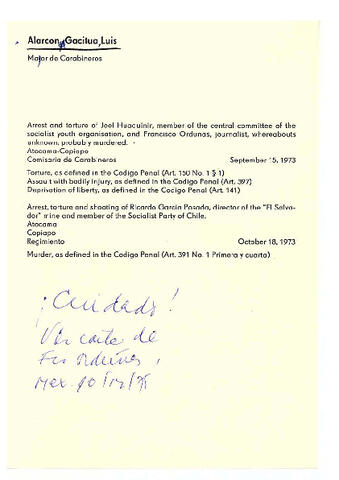 Alarcon, Gacitua, Luis
Major de Carabineros
Arrest and torture of Joel Huaquinir, member of the central committee of the
socialist youth organisation, and Francisco Ordunas, journalist, whereabouts
unknown, probably murdered.
Atacama-Copiapo
Comisaria de Carabineros September 15, 1973
Torture, as defined in the Codigo Penal (Art. 150 No. 1 § 1)
Assault with bodily injury, as defined in the Codigo Penal (Art. 397)
Deprivation of liberty, as defined in the Codigo Penal (Art. 141)
Arrest, torture and shooting of Ricardo Garcia Posada, director of the "El Salva-
dor" mine and member of the Socialist Party of Chile.
Atacama
Copiapo
Regimiento October 18, 1973
Murder, as defined in the Codigo Penal (Art. 391 No. 1 Primera y cuarta)
¡Cuidado!
Ver carta de
Ordunas,
Mex.